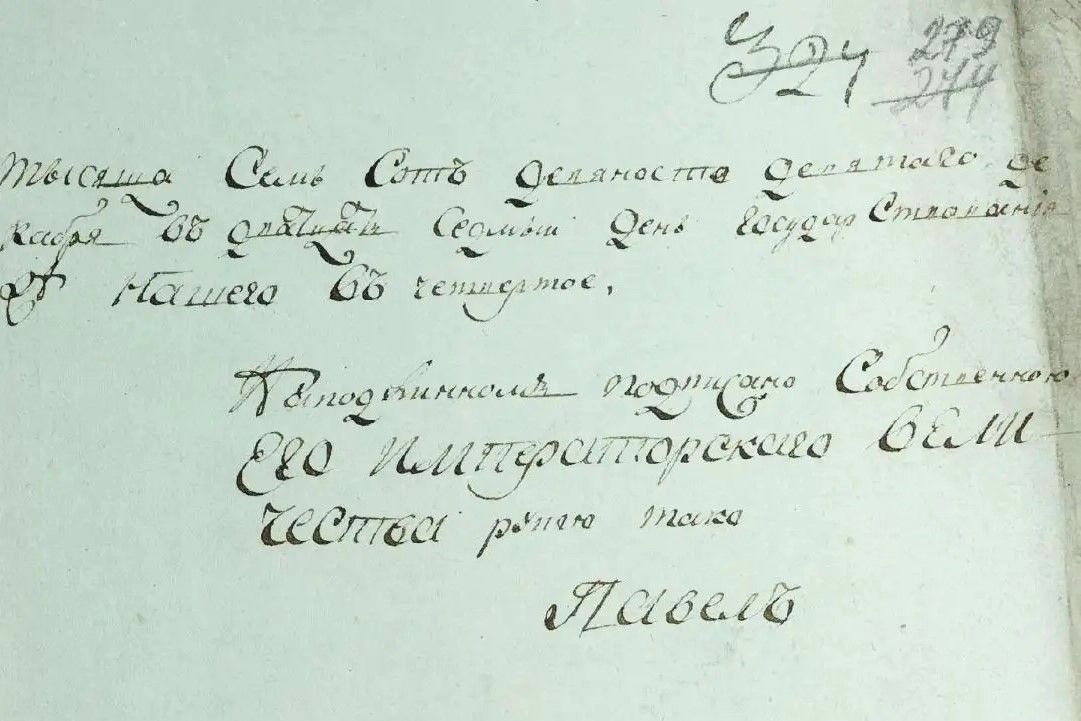 324 279
244
тысяща Семь Сотъ девяносто девятаго де
кабря въ дватцать Седмый день государствованія
нашего въ четвертое,
На подлинномъ подписано Собственною
ЕГО ИМПЕРАТОРСКАГО ВЕЛИ
ЧЕСТВА рукою тако
Павелъ